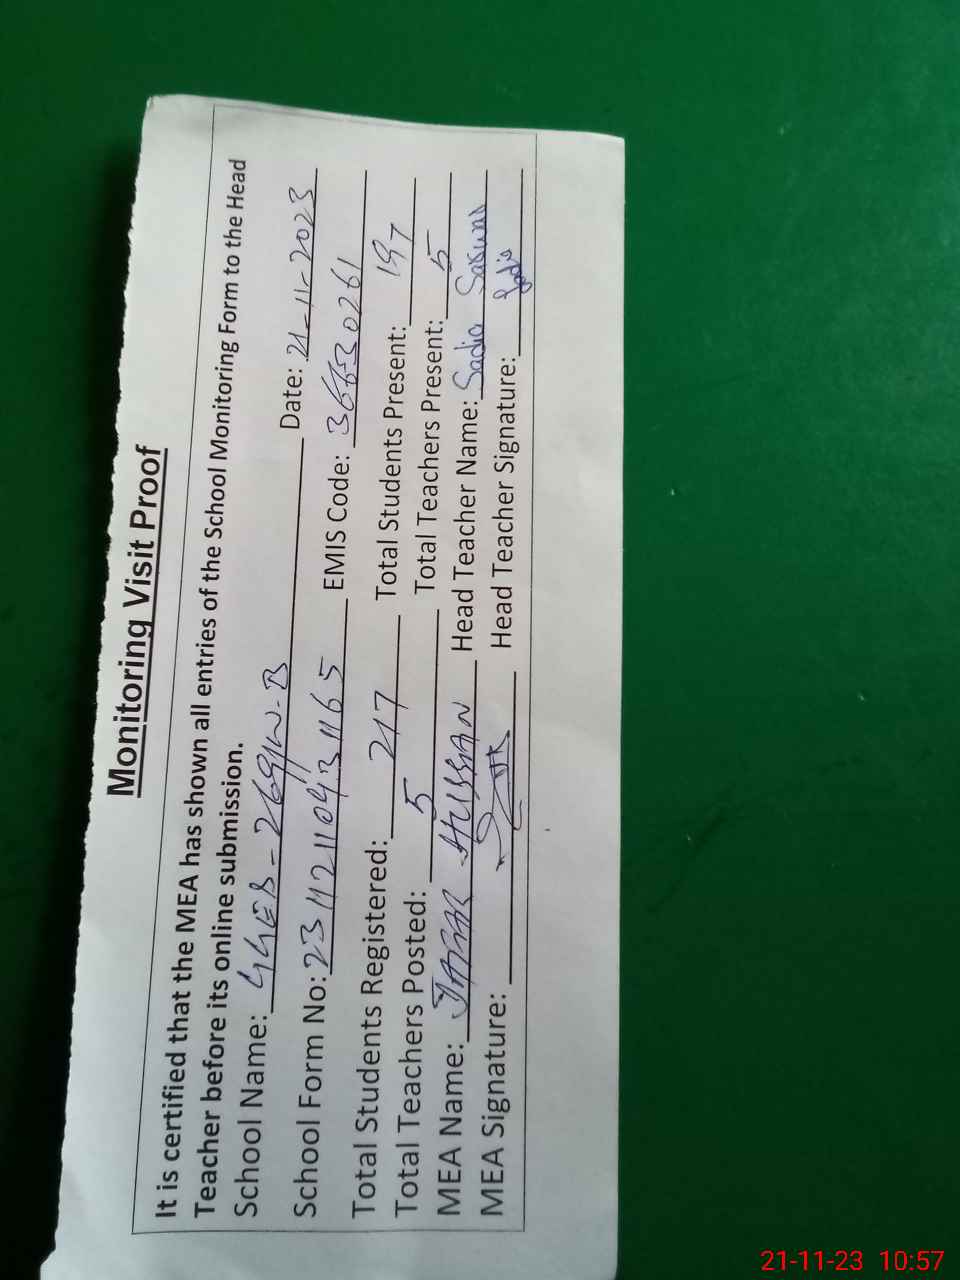 Monitoring Visit Proof
It is certified that the MEA has shown all entries of the School Monitoring Form to the Head
Teacher before its online submission.
School Name: Date: 21-11-2023
School Form No: EMIS Code:
Total Students Registered: 217 Total Students Present: 197
Total Teachers Posted: 5 Total Teachers Present: 5
MEA Name: HUSSAN Head Teacher Name: Sadia
MEA Signature: Head Teacher Signature: Sadia
21-11-23 10:57